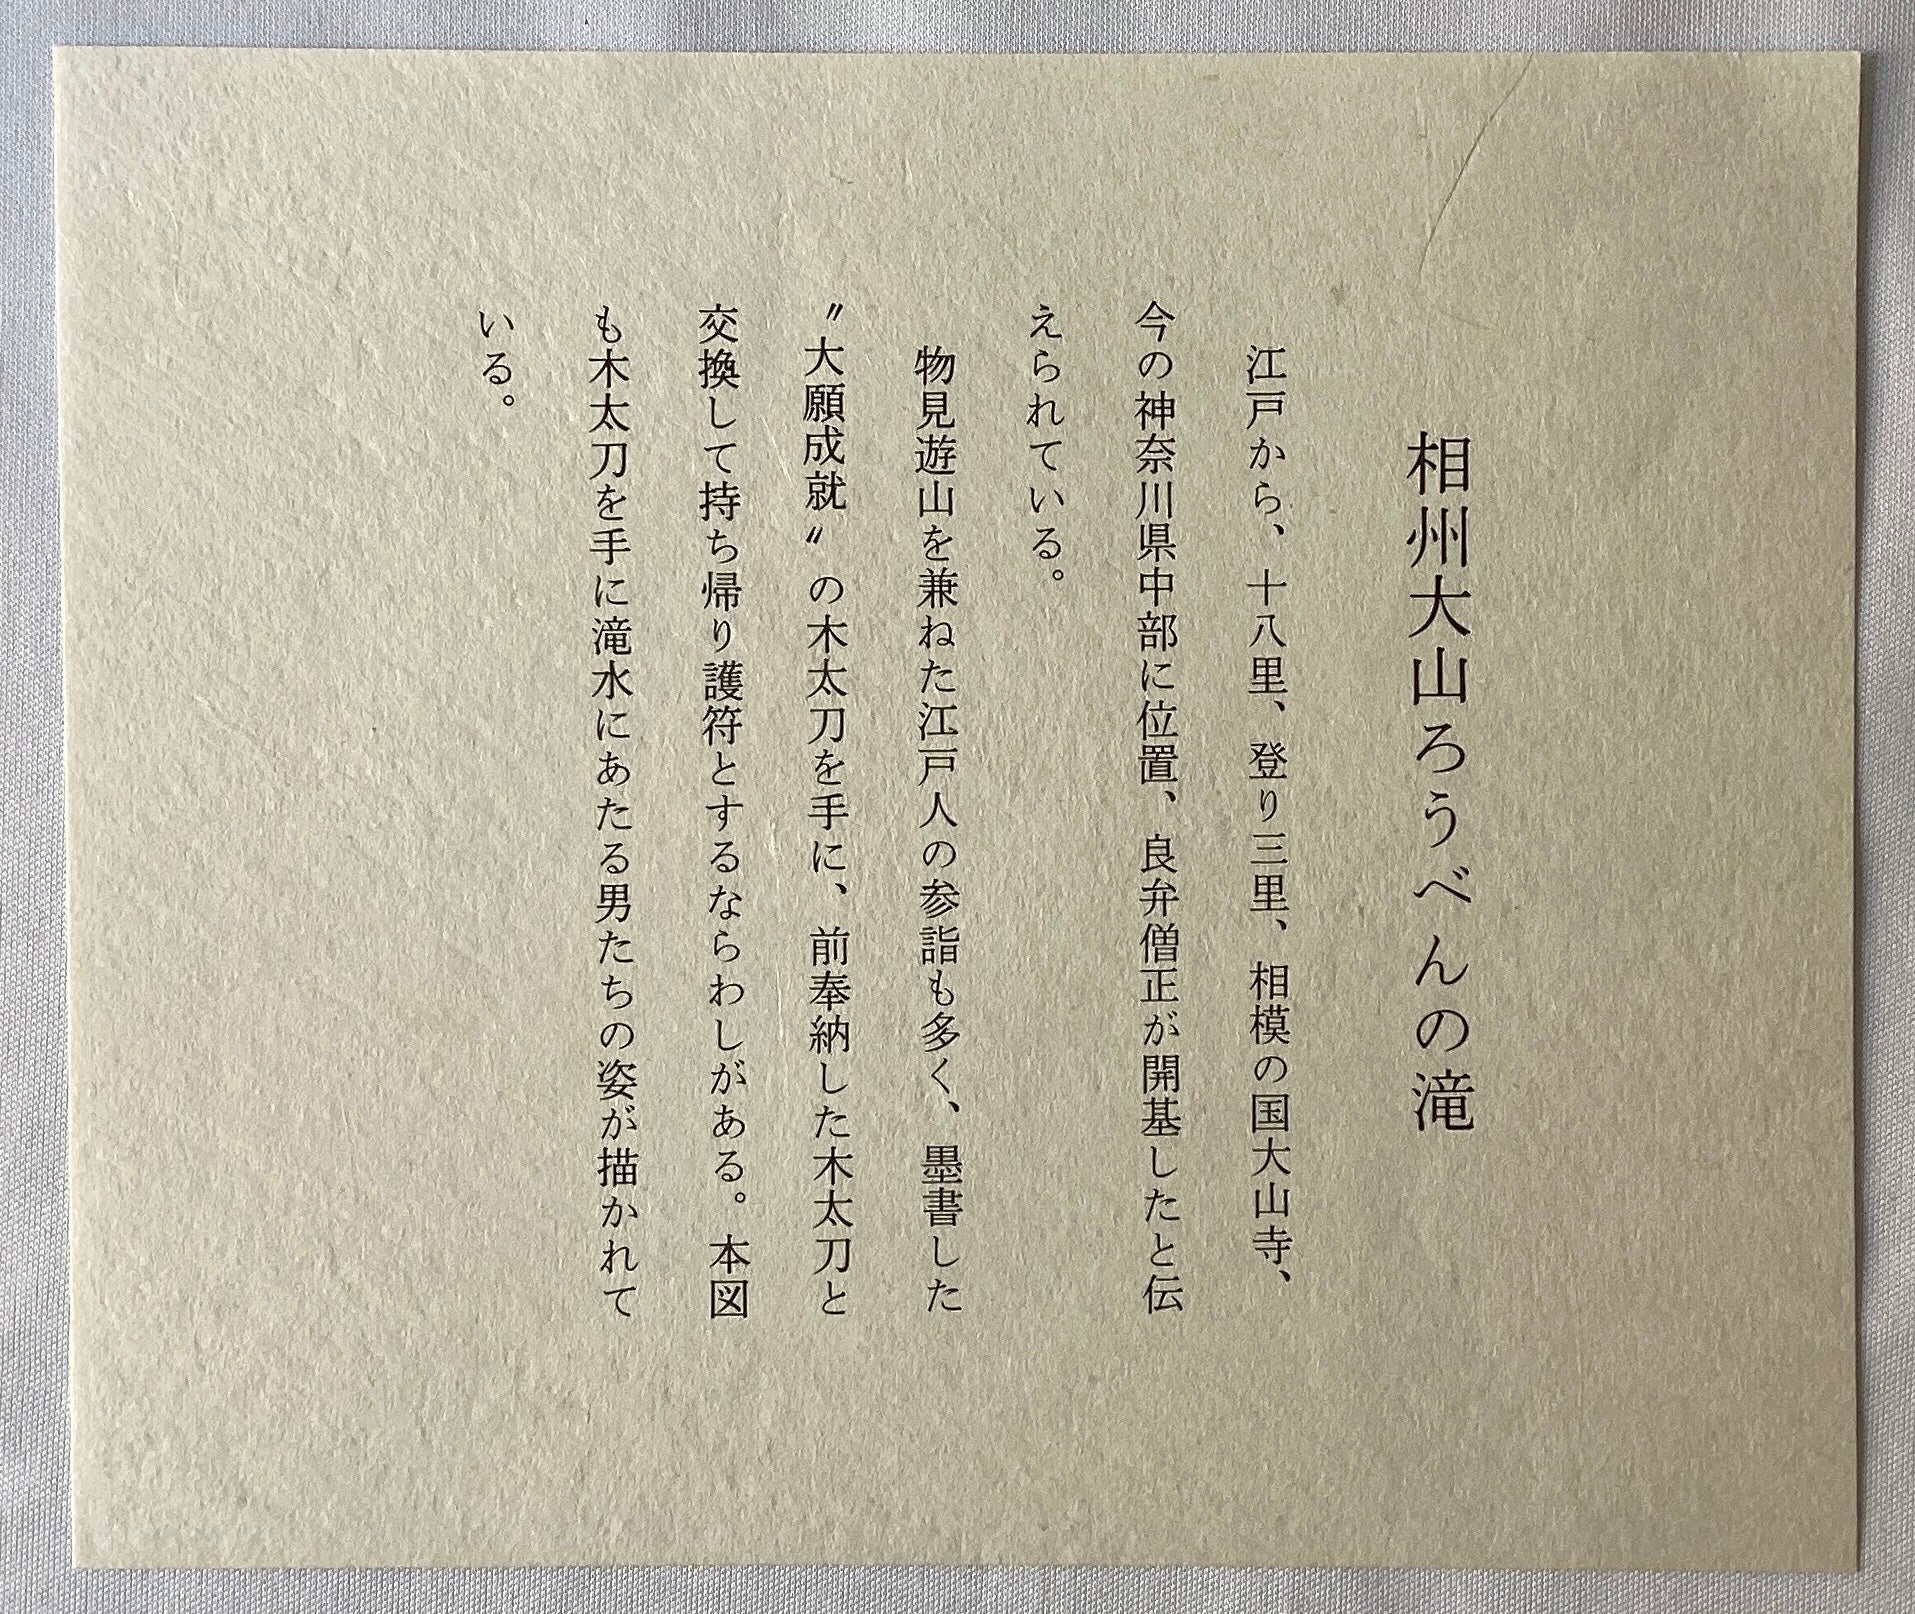 相州大山ろうべんの滝
江戸から、十八里、登り三里、相模の国大山寺、
今の神奈川県中部に位置、良弁僧正が開基したと伝
えられている。
物見遊山を兼ねた江戸人の参詣も多く、墨書した
〝大願成就〟の木太刀を手に、前奉納した木太刀と
交換して持ち帰り護符とするならわしがある。本図
も木太刀を手に滝水にあたる男たちの姿が描かれて
いる。